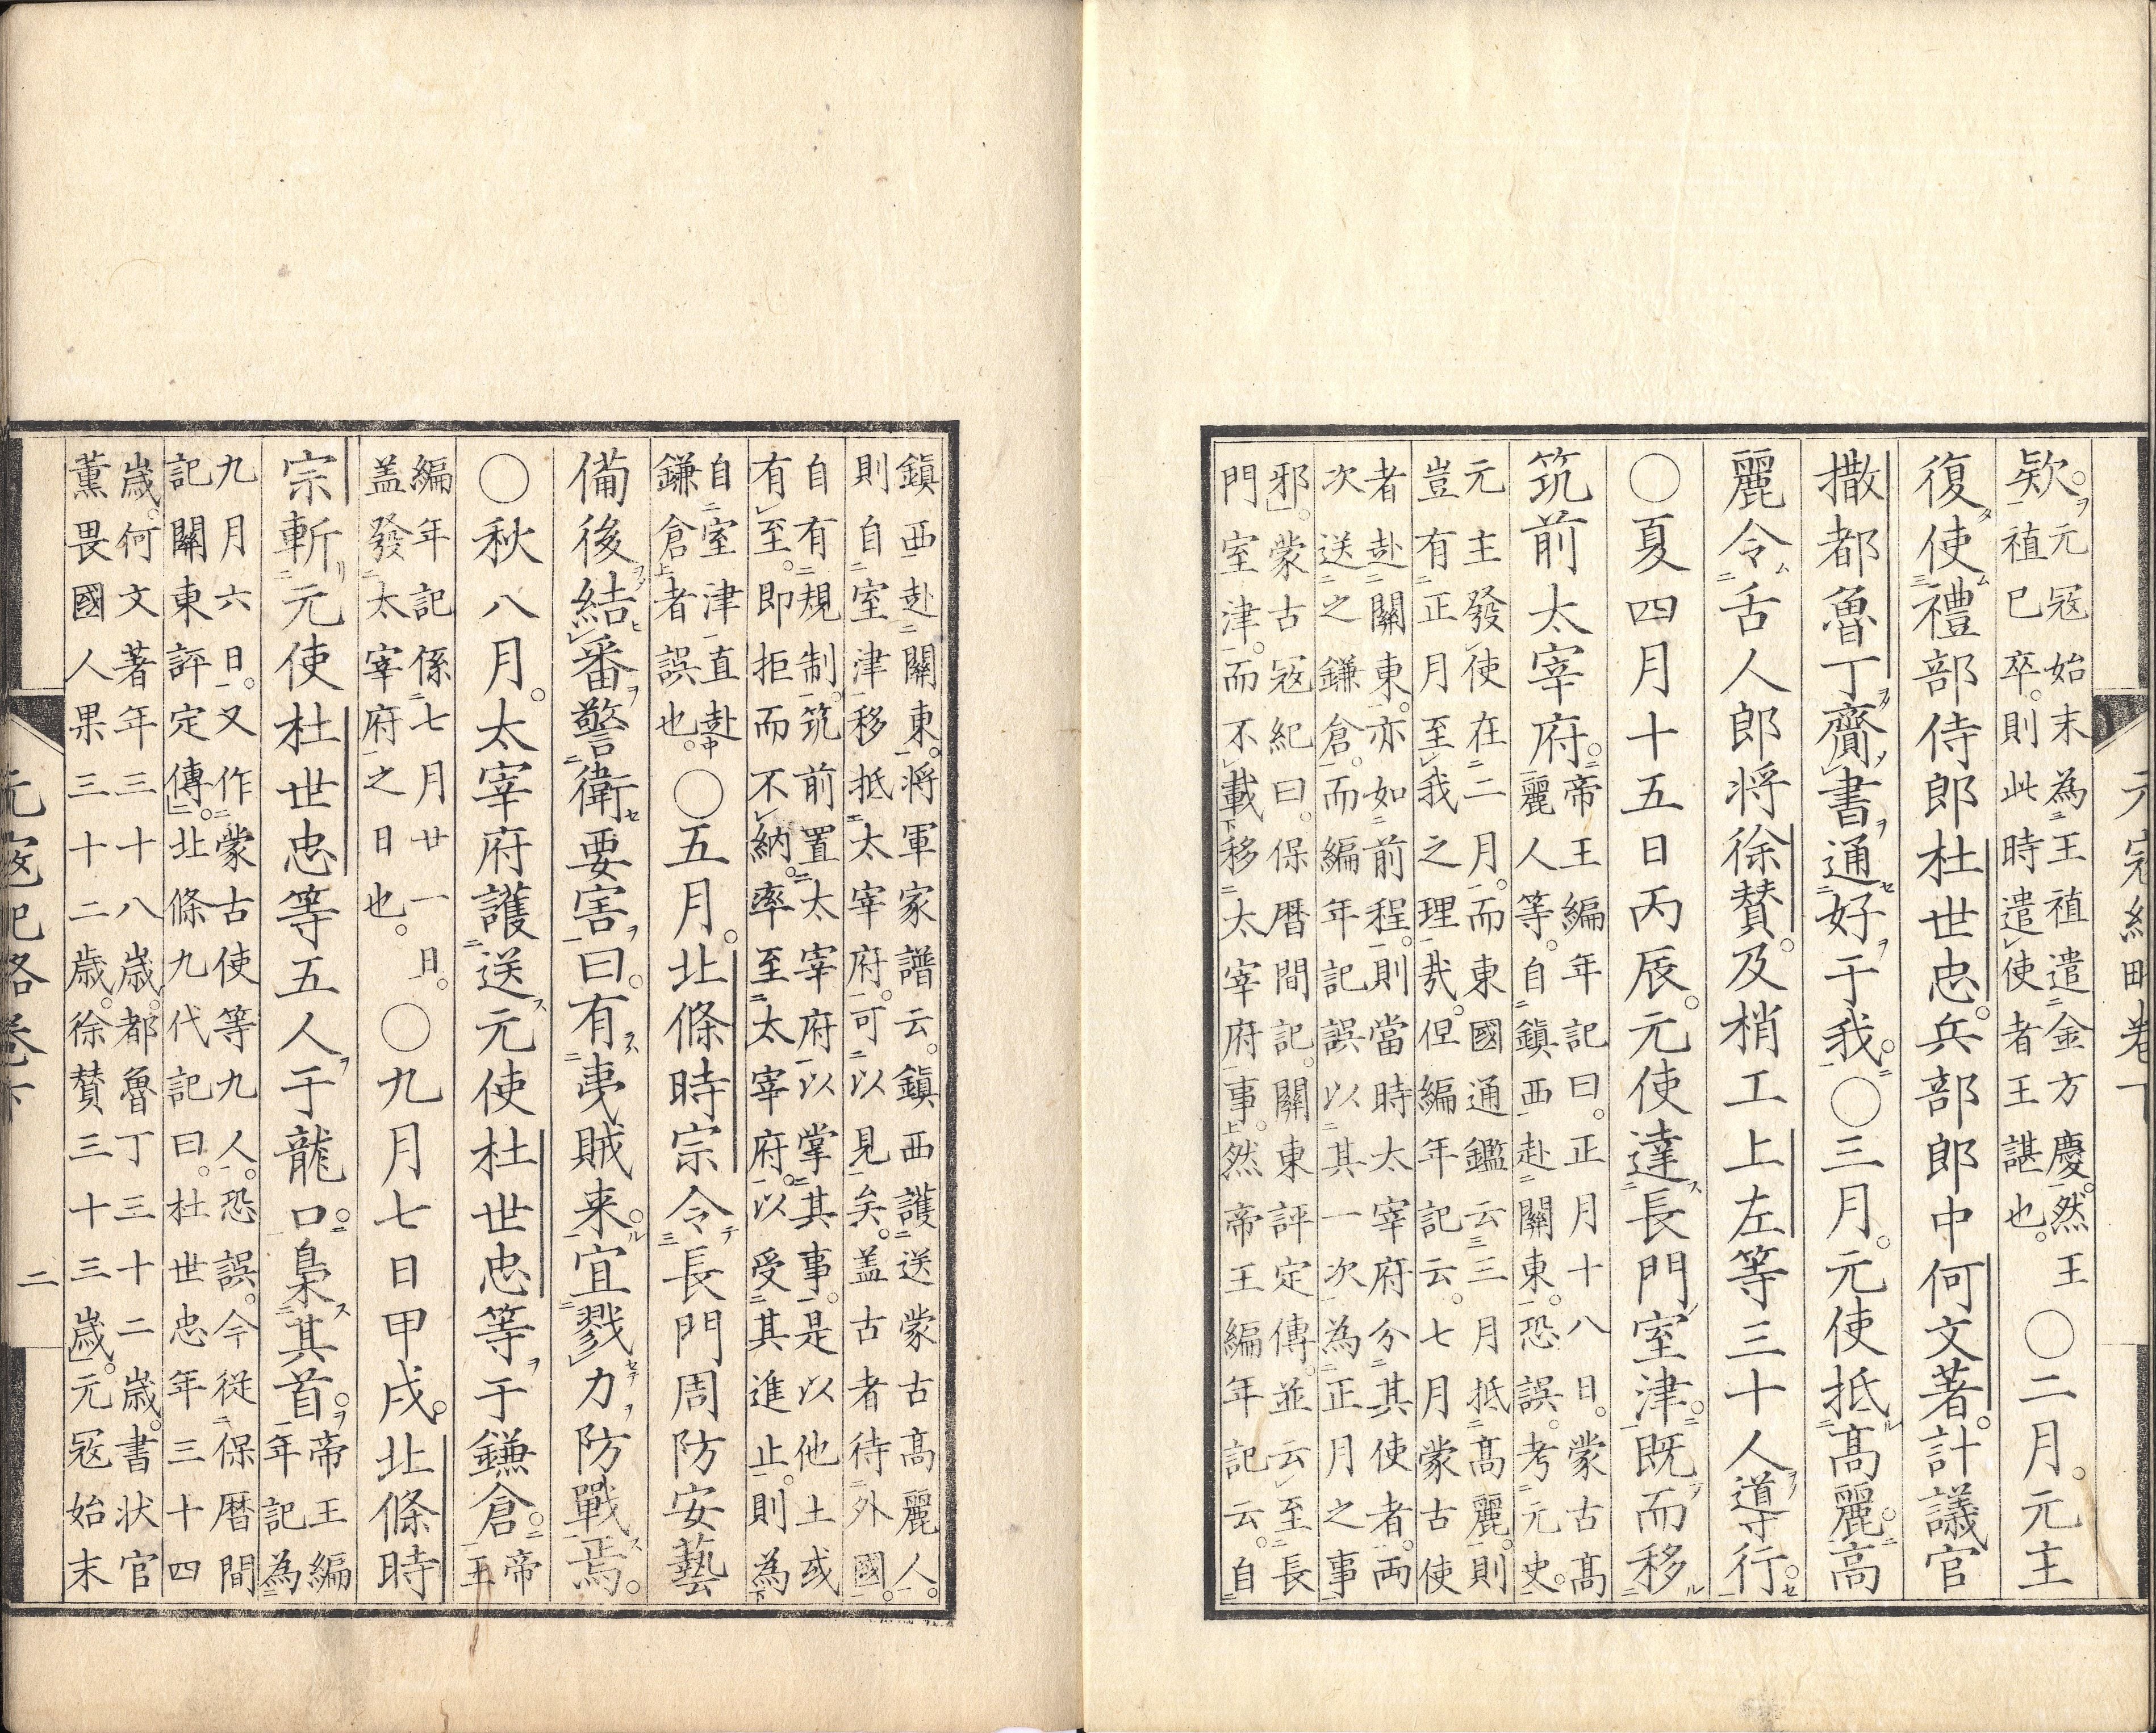 元寇紀略卷下
欵。元寇始末為王禃遣金方慶。然王
禃巳卒。則此時遣使者王諶也。
○二月。元主
復使禮部侍郎杜世忠。兵部郎中何文著。計議官
撒都魯丁齎書通好于我。○三月。元使抵髙麗。高
麗令舌人郎将徐賛。及梢工上左等三十人導行。
○夏四月十五日丙辰。元使達長門室津。既而移
筑前太宰府。帝王編年記曰。正月十八日。蒙古髙
麗人等。自鎮西赴關東。恐誤。考元史。
元主發使在二月。而東國通鑑云三月抵髙麗。則
豈有正月至我之理哉。但編年記云。七月蒙古使
者赴關東。亦如前程。則當時太宰府分其使者。両
次送之鎌倉。而編年記誤以其一次為正月之事
邪。蒙古寇紀曰。保暦間記。關東評定傳。並云至長
門室津。而不載移太宰府事。然帝王編年記云。自
鎮西赴關東。将軍家譜云。鎮西護送蒙古髙麗人。
則自室津移抵太宰府。可以見矣。盖古者待外國。
自有規制。筑前置太宰府以掌其事。是以他土或
有至。即拒而不納。率至太宰府。以受其進止。則為
自室津直赴
鎌倉者誤也。
○五月。北條時宗令長門周防安藝
備後結番警衛要害。曰。有夷賊来。宜戮力防戰焉。
○秋八月。太宰府護送元使杜世忠等于鎌倉。帝
王
編年記係七月廿一日。
盖發太宰府之日也。
○九月七日甲戌。北條時
宗斬元使杜世忠等五人于龍口。梟其首。帝王編
年記為
九月六日。又作蒙古使等九人。恐誤。今従保暦間
記關東評定傳。北條九代記曰。杜世忠年三十四
歳。何文著年三十八歳。都魯丁三十二歳。書状官
薫畏國人果三十二歳。徐賛三十三歳。元寇始末
元寇紀略卷下
二